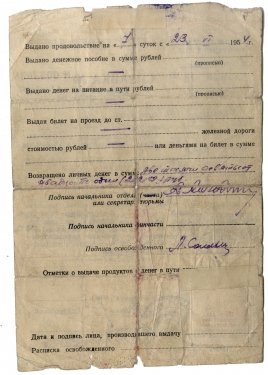 Выдано продовольствие на „ 7 " суток с « 23 » VI 195 г.
Выдано денежное пособие в сумме рублей
(прописью)
Выдано денег на питание в пути рублей
(прописью)
Выдан билет на проезд до ст.
железной дороги
стоимостью рублей или деньгами на билет в сумме
Возвращено личных денег в сумме
Подпись начальника отдела (части)
или секретаря тюрьмы
Подпись начальника финчасти
Подпись освобожденного
Отметки о выдаче продуктов и денег в пути
Дата и подпись лица, производившего выдачу
Расписка освобожденного